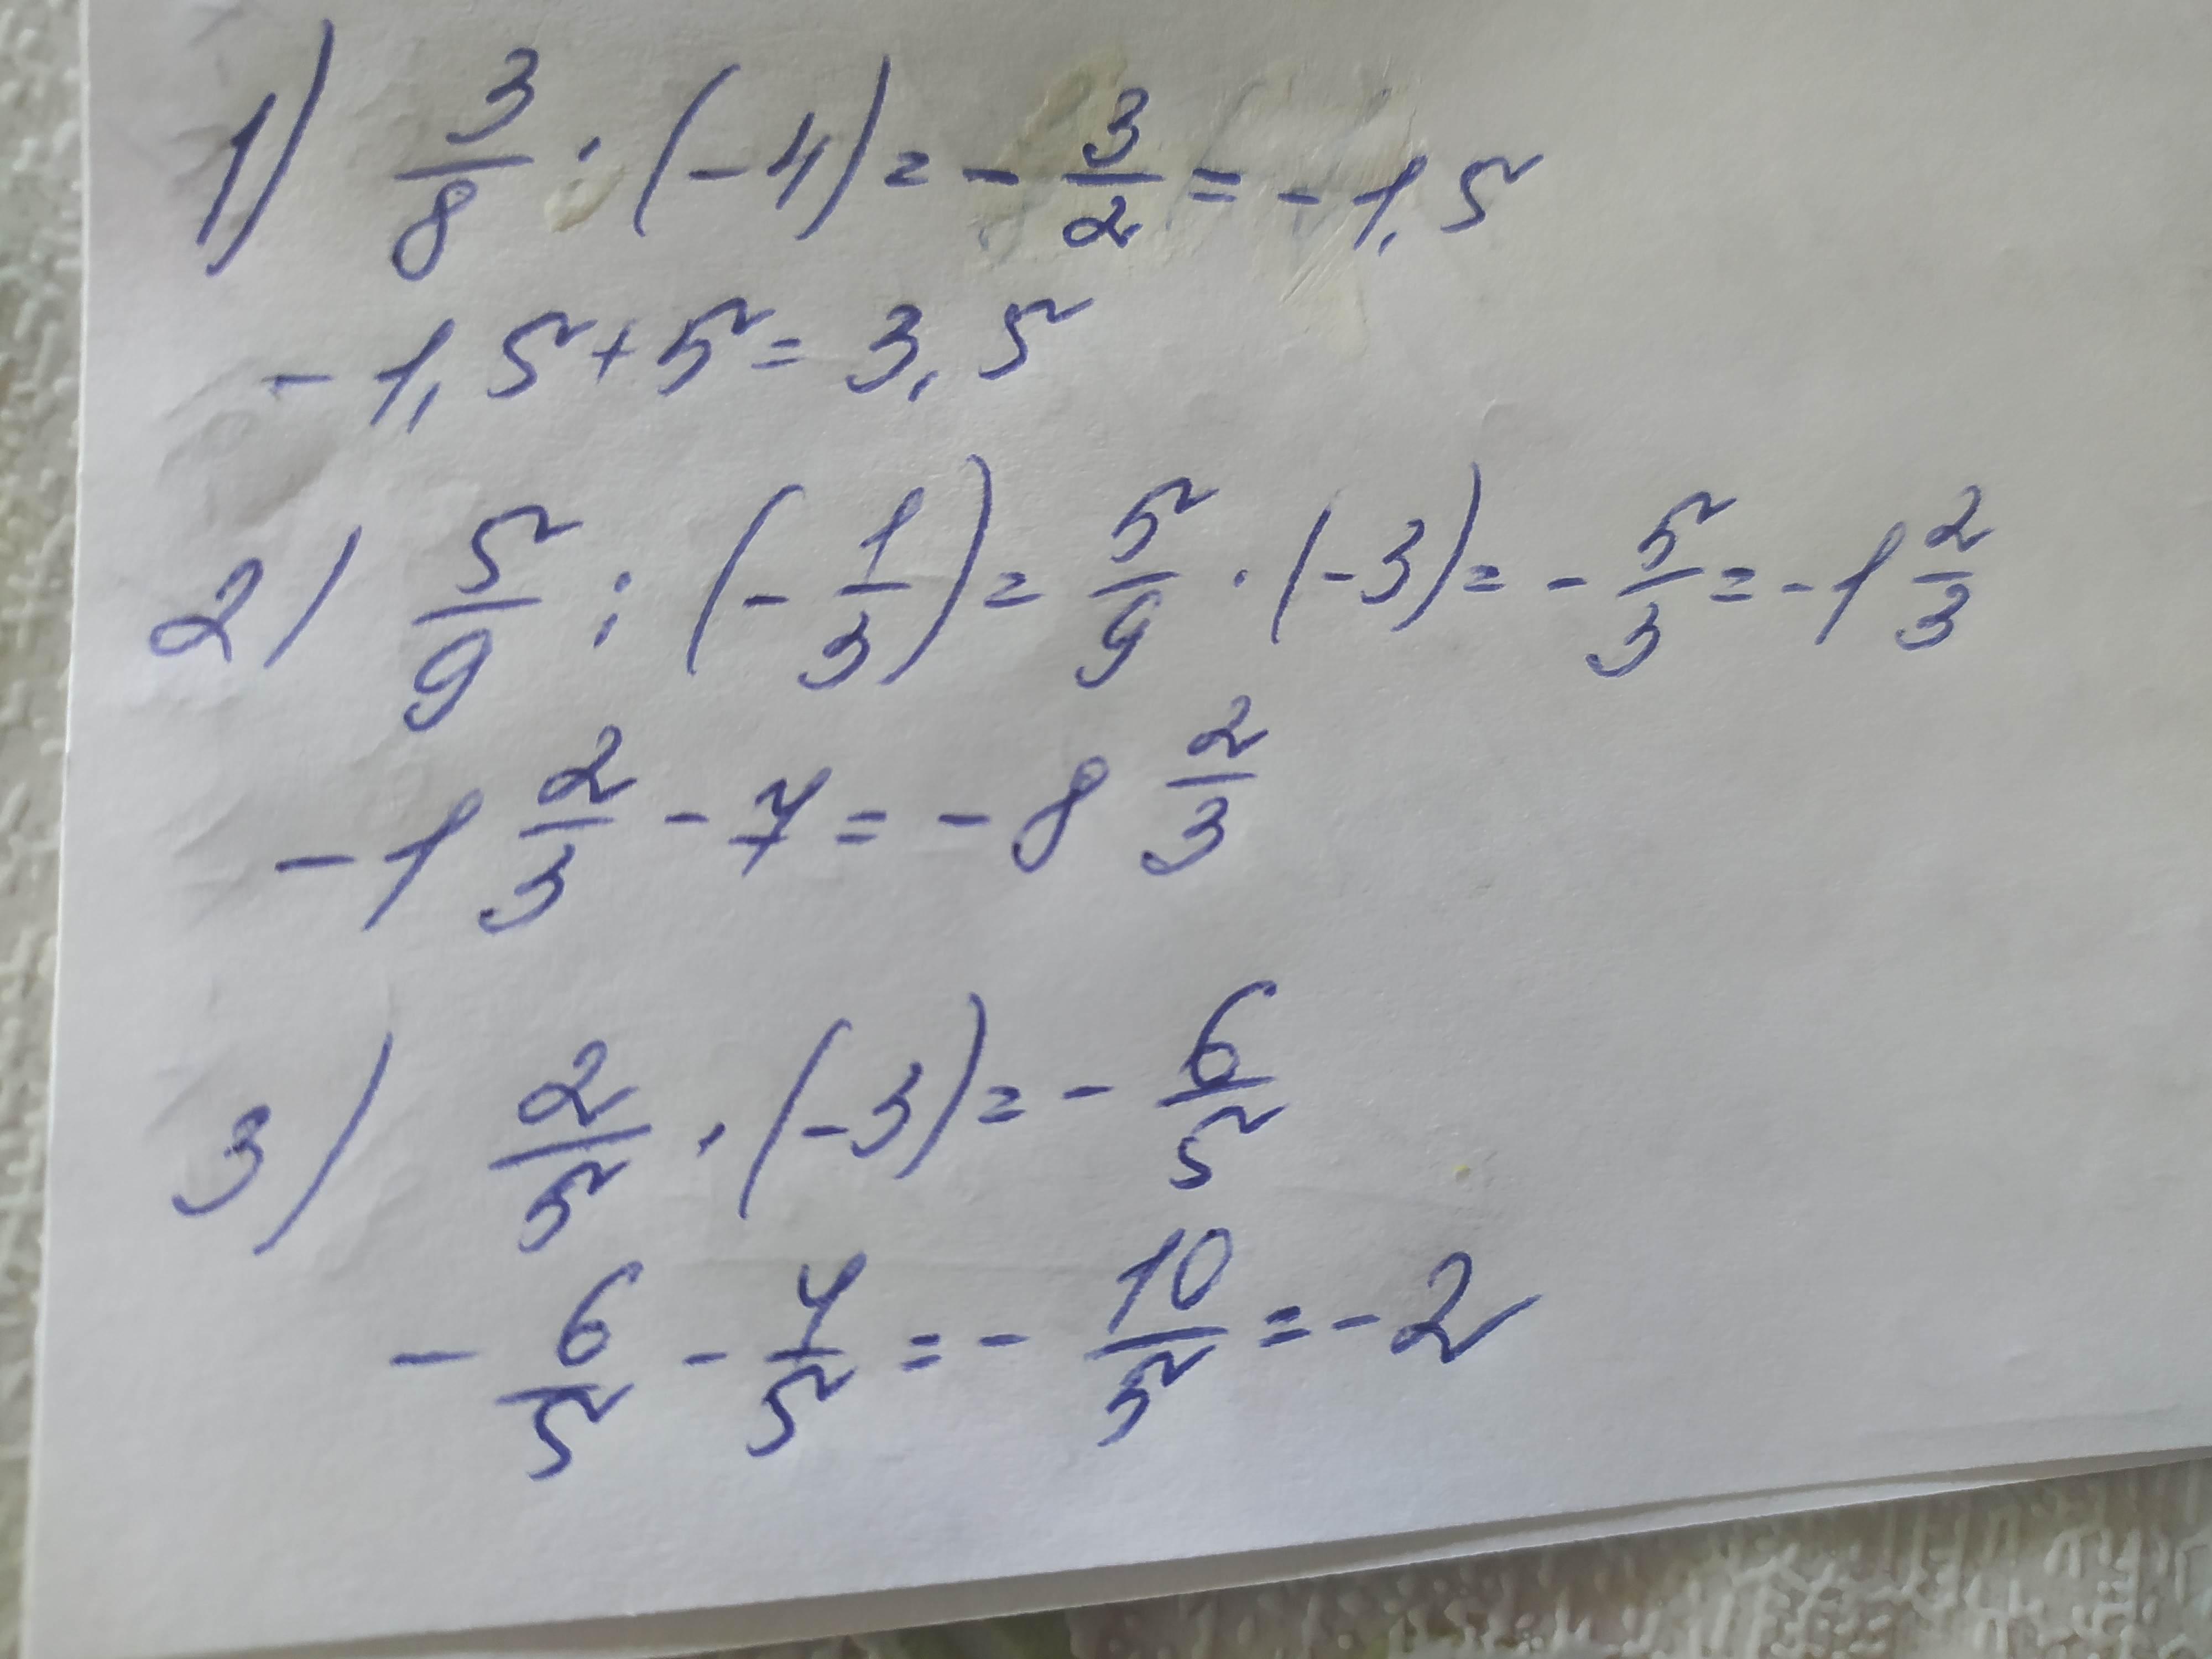 1) 3/8 · (-4) = - 3/2 = -1,5
-1,5 + 5 = 3,5
2) 5/9 : (- 1/3) = 5/9 · (-3) = - 5/3 = -1 2/3
-1 2/3 - 7 = -8 2/3
3) 2/5 · (-3) = - 6/5
- 6/5 - 4/5 = - 10/5 = -2